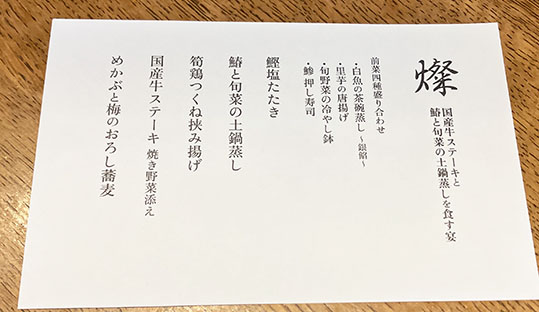 燦
国産牛ステーキと
鰆と旬菜の土鍋蒸しを食す宴
前菜四種盛り合わせ
・白魚の茶碗蒸し ~銀餡~
・里芋の唐揚げ
・旬野菜の冷やし鉢
・鯵 押し寿司
鰹塩たたき
鰆と旬菜の土鍋蒸し
筍鶏つくね挟み揚げ
国産牛ステーキ 焼き野菜添え
めかぶと梅のおろし蕎麦